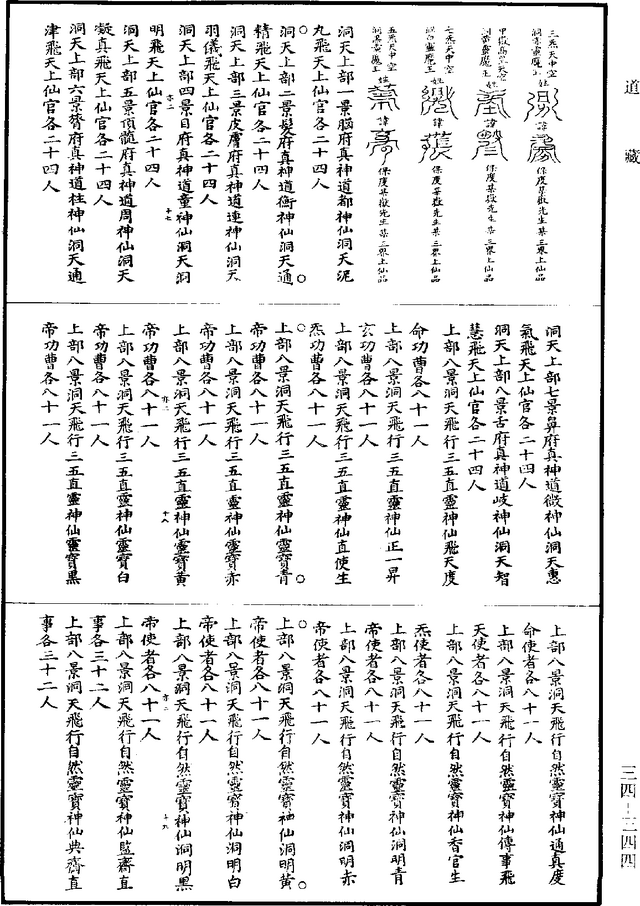 道藏
三炁天中空
洞
靈魔
姓
諱
保度某嶽先生某三界上仙品
姓
諱
保度某嶽先生某三界上仙品
七炁天中空
靈魔王
姓
諱
保度某嶽先生某三界上仙品
五炁天中空
魔王
姓
諱
保度某嶽先生某三界上仙品
洞天上部一景腦府真神道都神仙洞天泥
丸飛天上仙官各二十四人
洞天上部二景髮府真神道衡神仙洞天通
精飛天上仙官各二十四人
洞天上部三景皮膚府真神道連神仙洞天
羽儀飛天上仙官各二十四人
洞天上部四景目府真神道童神仙洞天洞
明飛天上仙官各二十四人
洞天上部五景頂髓府真神道周神仙洞天
凝真飛天上仙官各二十四人
洞天上部六景膂府真神道柱神仙洞天通
津飛天上仙官各二十四人
洞天上部七景鼻府真神道微神仙洞天惠
氣飛天上仙官各二十四人
洞天上部八景舌府真神道岐神仙洞天智
慧飛天上仙官各二十四人
上部八景洞天飛行三五直靈神仙飛天度
命功曹各八十一人
上部八景洞天飛行三五直靈神仙正一昇
玄功曹各八十一人
上部八景洞天飛行三五直靈神仙直使生
炁功曹各八十一人
上部八景洞天飛行三五直靈神仙靈寶青
帝功曹各八十一人
上部八景洞天飛行三五直靈神仙靈寶赤
帝功曹各八十一人
上部八景洞天飛行三五直靈神仙靈寶黄
帝功曹各八十一人
上部八景洞天飛行三五直靈神仙靈寶白
帝功曹各八十一人
上部八景洞天飛行三五直靈神仙靈寶黑
帝功曹各八十一人
上部八景洞天飛行自然靈寶神仙通真度
命使者各八十一人
上部八景洞天飛行自然靈寶神仙傳事飛
天使者各八十一人
上部八景洞天飛行自然靈寶神仙香官生
炁使者各八十一人
上部八景洞天飛行自然靈寶神仙洞明青
帝使者各八十一人
上部八景洞天飛行自然靈寶神仙洞明赤
帝使者各八十一人
上部八景洞天飛行自然靈寶神仙洞明黄
帝使者各八十一人
上部八景洞天飛行自然靈寶神仙洞明白
帝使者各八十一人
上部八景洞天飛行自然靈寶神仙洞明黑
帝使者各八十一人
上部八景洞天飛行自然靈寶神仙監齋直
事各三十二人
上部八景洞天飛行自然靈寶神仙典齋直
事各三十二人
三四–三四四